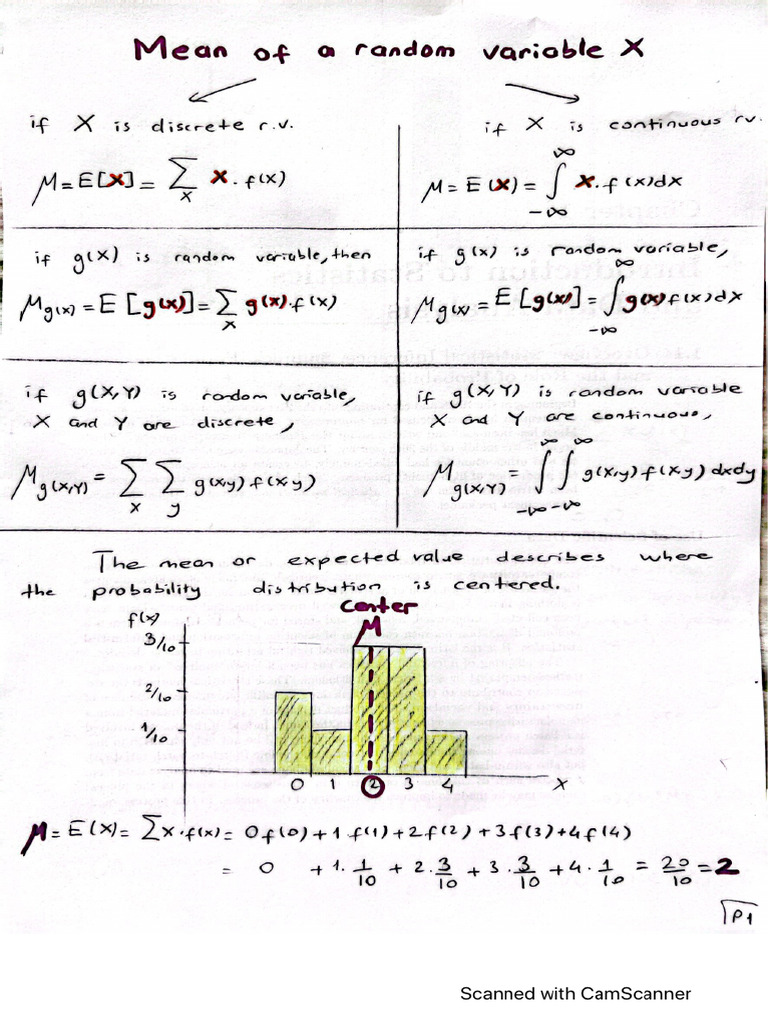 Mean of a random variable X
if X is discrete r.v.
μ = E[X] = Σ_x x · f(x)
if X is continuous rv.
μ = E(X) = ∫_{-∞}^{∞} x · f(x)dx
if g(X) is random variable, then
μ_g(x) = E[g(x)] = Σ_x g(x) · f(x)
if g(x) is random variable,
μ_g(x) = E[g(x)] = ∫_{-∞}^{∞} g(x) f(x)dx
if g(X,Y) is random variable,
X and Y are discrete,
μ_g(X,Y) = Σ_x Σ_y g(x,y) f(x,y)
if g(X,Y) is random variable
X and Y are continuous,
μ_g(X,Y) = ∫_{-∞}^{∞} ∫_{-∞}^{∞} g(x,y) f(x,y) dxdy
The mean or expected value describes where
the probability distribution is centered.
Center
f(x)
μ
3/10
2/10
1/10
0 1 2 3 4 x
μ = E(X) = Σ x · f(x) = 0f(0) + 1f(1) + 2f(2) + 3f(3) + 4f(4)
= 0 + 1 · 1/10 + 2 · 3/10 + 3 · 3/10 + 4 · 1/10 = 20/10 = 2
P1
Scanned with CamScanner